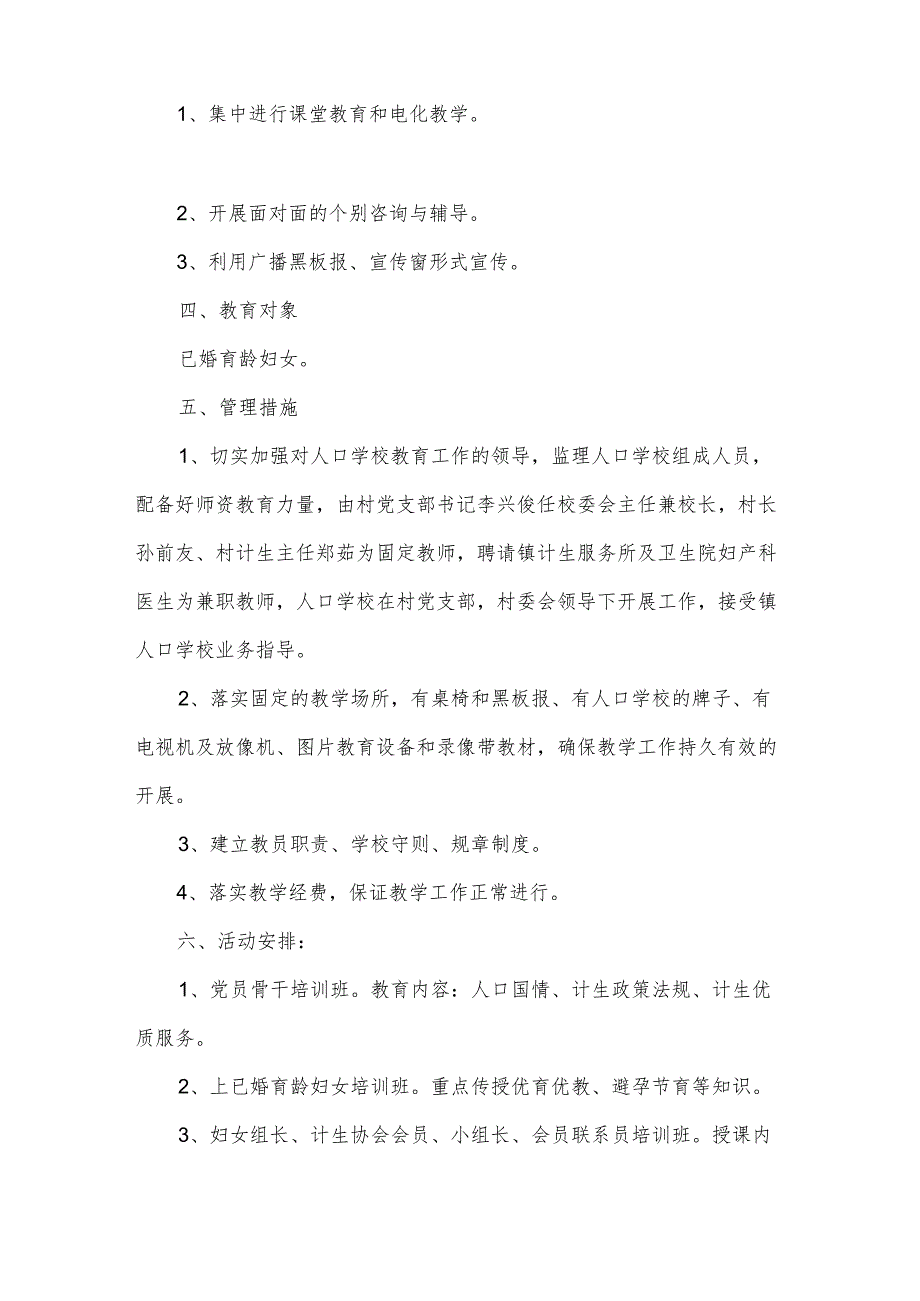 1、集中进行课堂教育和电化教学。
2、开展面对面的个别咨询与辅导。
3、利用广播黑板报、宣传窗形式宣传。
四、教育对象
已婚育龄妇女。
五、管理措施
1、切实加强对人口学校教育工作的领导，监理人口学校组成人员，
配备好师资教育力量，由村党支部书记李兴俊任校委会主任兼校长，村长
孙前友、村计生主任郑茹为固定教师，聘请镇计生服务所及卫生院妇产科
医生为兼职教师，人口学校在村党支部，村委会领导下开展工作，接受镇
人口学校业务指导。
2、落实固定的教学场所，有桌椅和黑板报、有人口学校的牌子、有
电视机及放像机、图片教育设备和录像带教材，确保教学工作持久有效的
开展。
3、建立教员职责、学校守则、规章制度。
4、落实教学经费，保证教学工作正常进行。
六、活动安排：
1、党员骨干培训班。教育内容：人口国情、计生政策法规、计生优
质服务。
2、上已婚育龄妇女培训班。重点传授优育优教、避孕节育等知识。
3、妇女组长、计生协会会员、小组长、会员联系员培训班。授课内